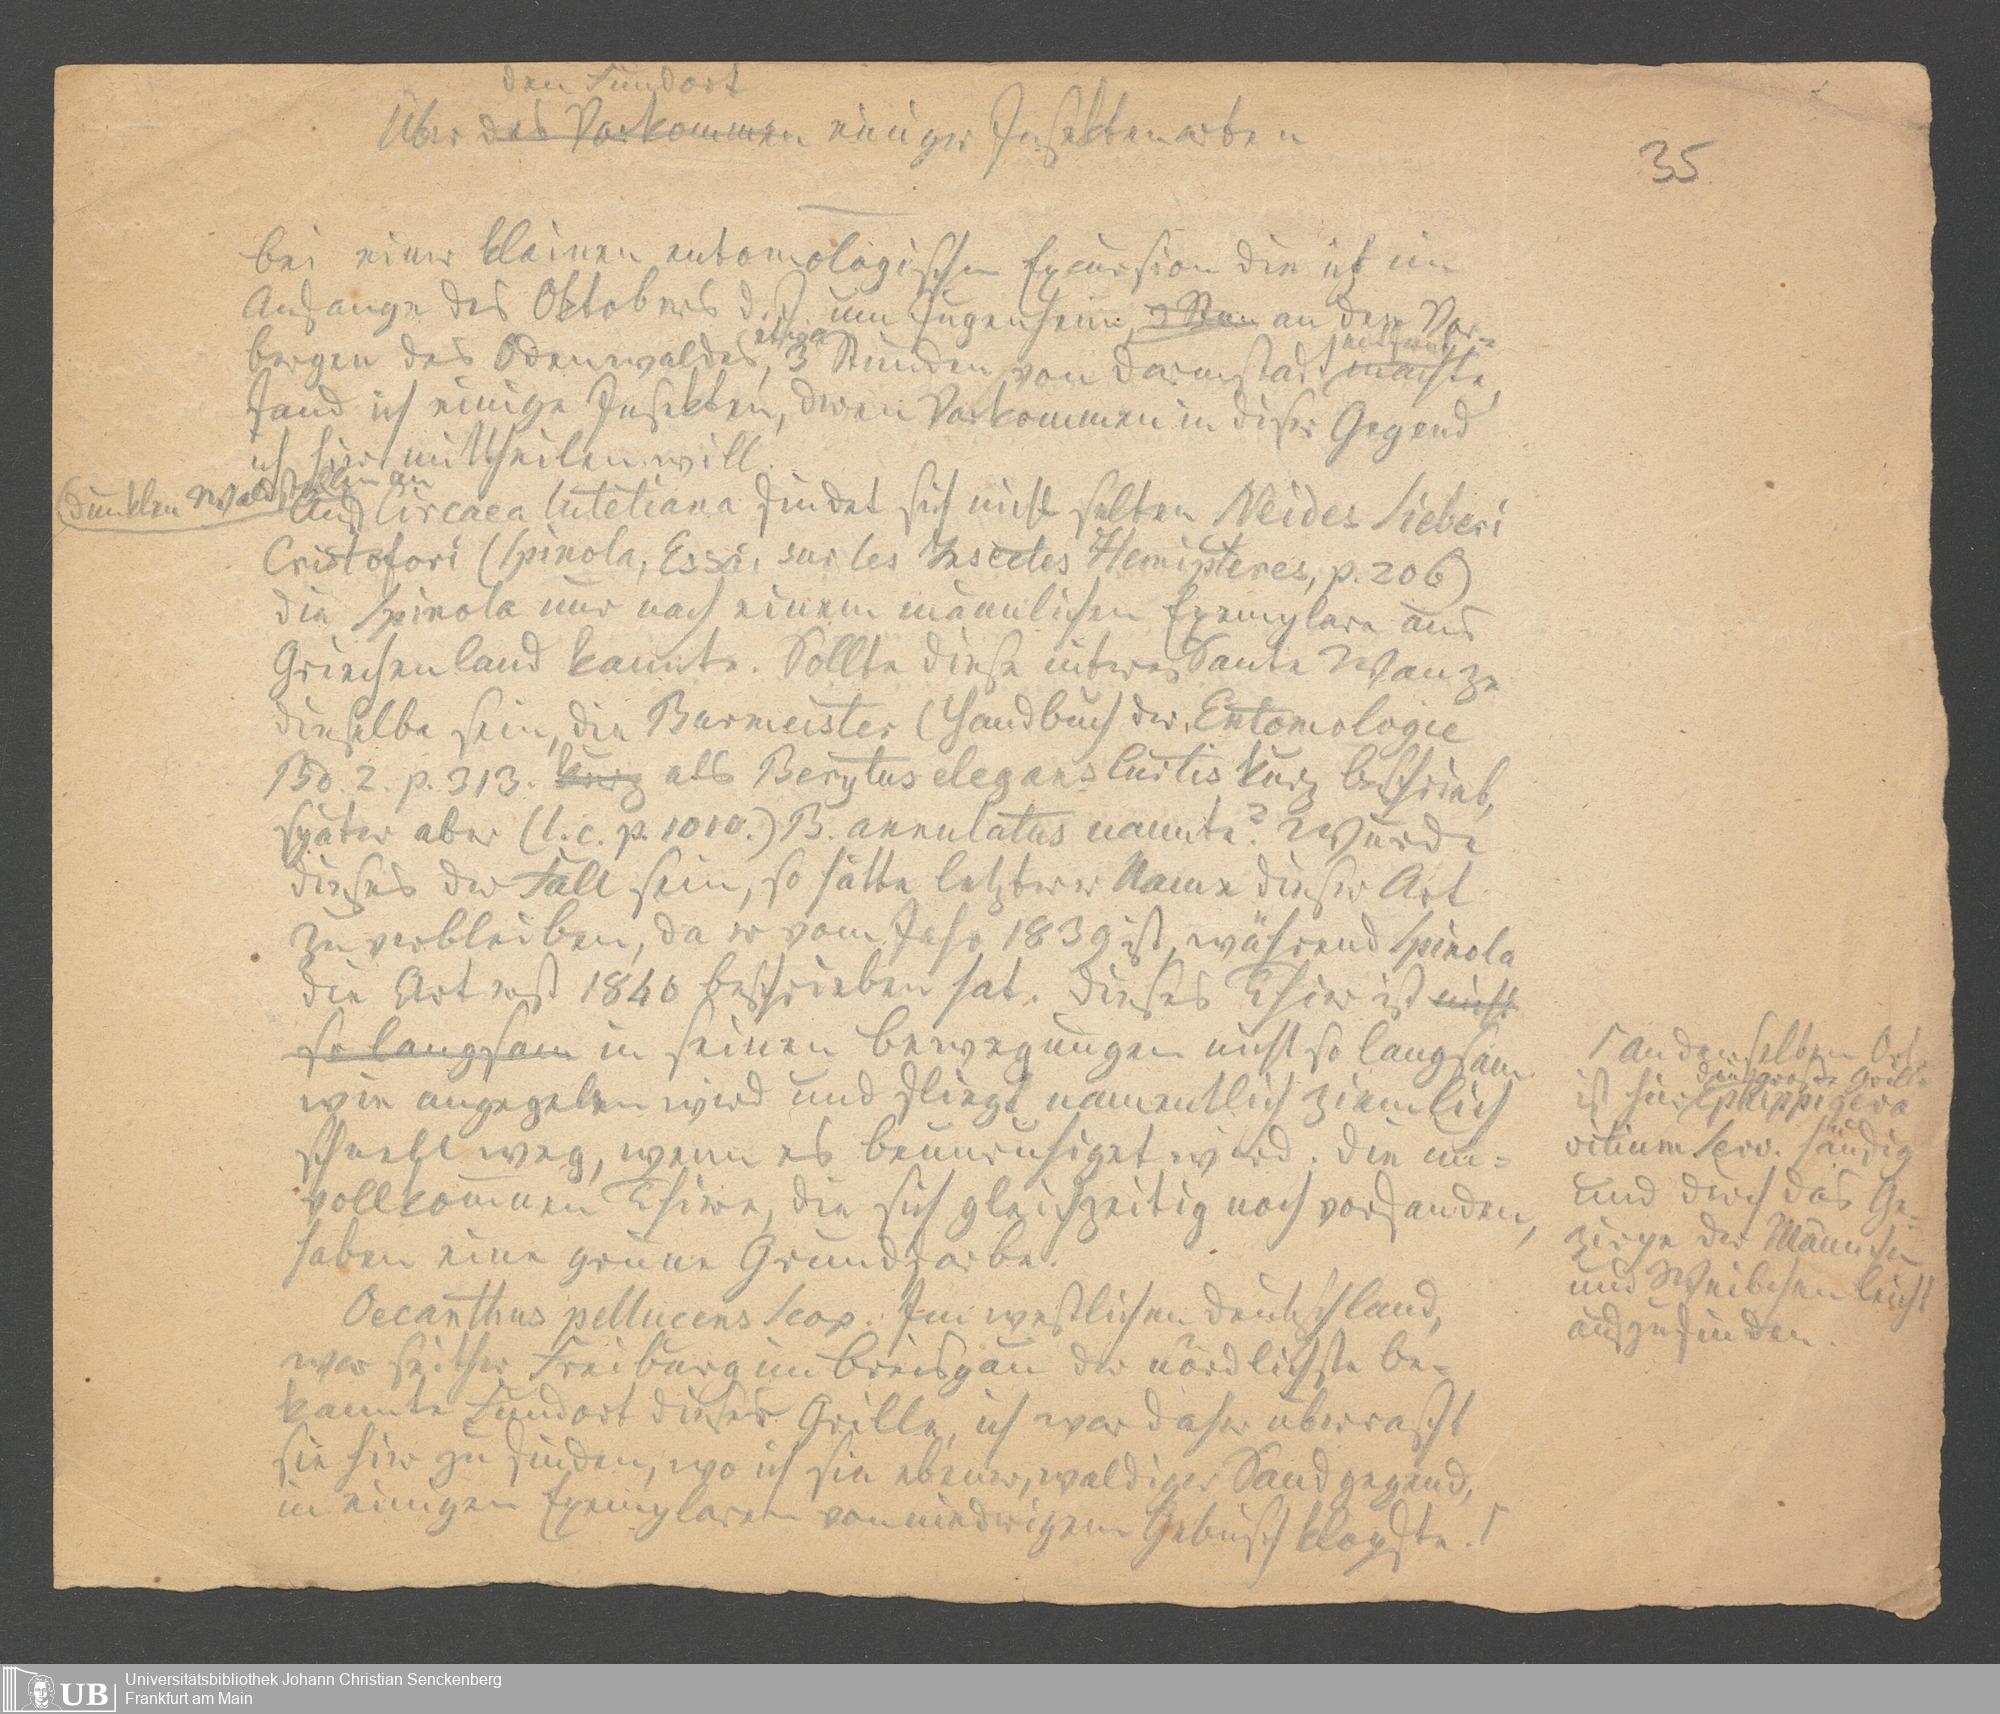 den Fundort
Über das Vorkommen einiger Insektenarten
35.
bei einer kleinen entomologischen Excursion die ich im
Anfange des Oktobers d. J. um Jugenheim, 3 Stun an den Vor-
bergen des Odenwaldes, etwa 3 Stunden von Darmstadt machte,
fand ich einige Insekten, deren Vorkommen in diser Gegend
ich hier mittheilen will.
dunklen Waldstellen an
Auf Circaea lutetiana findet sich nicht selten Neides Sieberi
Cristofori (Spinola, Essai sur les Insectes Hemipteres, p. 206)
die Spinola nur nach einem männlichen Exemplare aus
Griechenland kannte. Sollte diese interessante Wanze
dieselbe sein, die Burmeister (Handbuch der Entomologie
Bd. 2. p. 313. kurz als Berytus elegans Curtis kurz beschrieb,
später aber (l. c. p. 1010.) B. annulatus nannte? Würde
dieses der Fall sein, so hätte letzterer Name dieser Art
zu verbleiben, da er vom Jahr 1839 ist, während Spinola
die Art erst 1840 beschrieben hat. Dieses Thier ist nicht
so langsam in seinen bewegungen nicht so langsam
wie angegeben wird und fliegt namentlich ziemlich
schnell weg, wenn es beunruhiget wird. Die un-
vollkommnen Thiere, die sich gleichzeitig noch vorfanden,
haben eine grüne Grundfarbe.
Oecanthus pellucens Scop. Im westlichen Deutschland,
war seither Freiburg im Breisgau der nördlichste be-
kannte Fundort dieser Grille, ich war daher überrascht
sie hier zu finden, wo ich sie ebener, waldiger Sandgegend,
in einigen Exemplaren von niedrigem Gebüsch klopfte. Γ
Γ an demselben Ort
die grosse Grille
ist hier Ephippigera
vitium Serv. häufig
und durch das Ge-
zirpe der Männchen
und Weibchen leicht
aufzufinden.
Universitätsbibliothek Johann Christian Senckenberg
Frankfurt am Main
UB